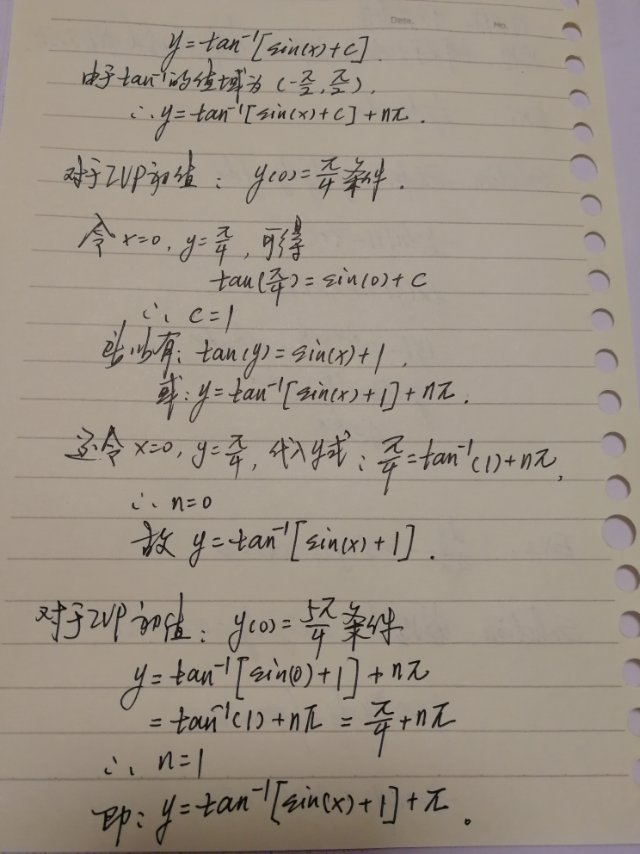 Date. No.
y=tan⁻¹[sin(x)+c].
由于tan⁻¹的值域为(-π/2,π/2),
∴y=tan⁻¹[sin(x)+c]+nπ.
对于IVP初值:y(0)=π/4条件.
令x=0,y=π/4,可得
tan(π/4)=sin(0)+c
∴c=1
所以有:tan(y)=sin(x)+1,
或:y=tan⁻¹[sin(x)+1]+nπ.
还令x=0,y=π/4,代入y式:π/4=tan⁻¹(1)+nπ,
∴n=0
故y=tan⁻¹[sin(x)+1].
对于IVP初值:y(0)=5π/4条件
y=tan⁻¹[sin(0)+1]+nπ
=tan⁻¹(1)+nπ=π/4+nπ
∴n=1
即:y=tan⁻¹[sin(x)+1]+π。